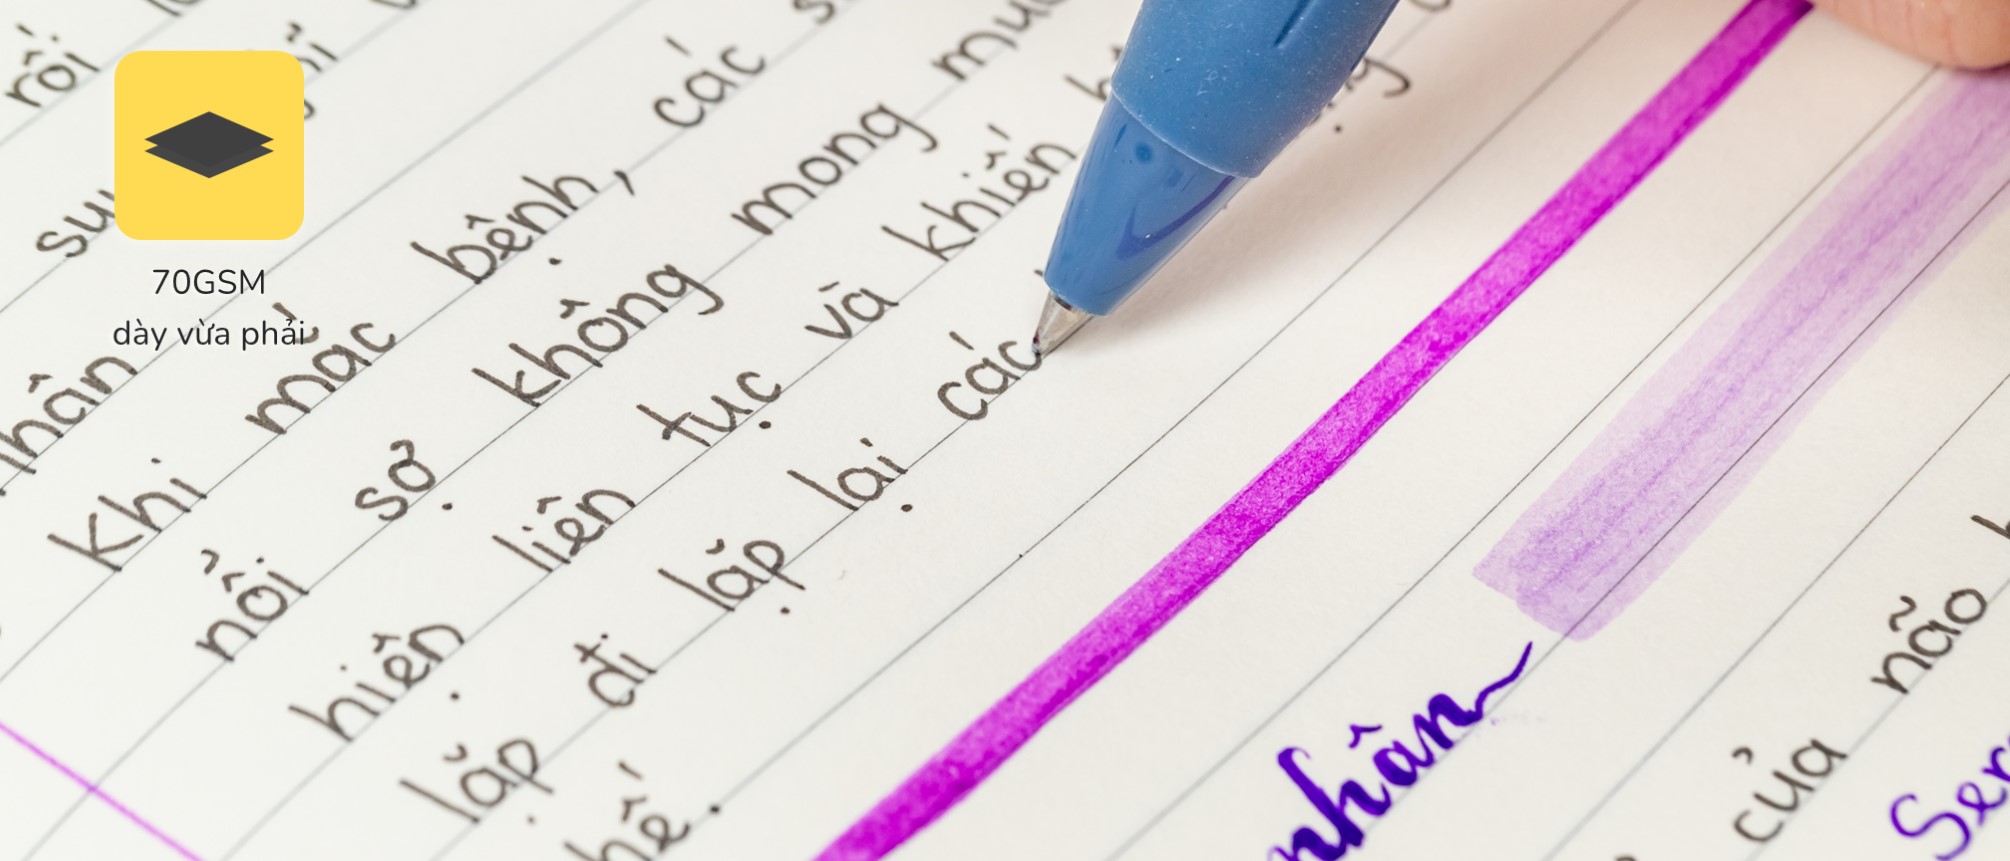 70GSM
dày vừa phải
rối
su
nhân
Khi mắc bệnh, các
nổi sợ không mong
hiện liên tục và khiến
lặp đi lặp lại các
nhân
của não